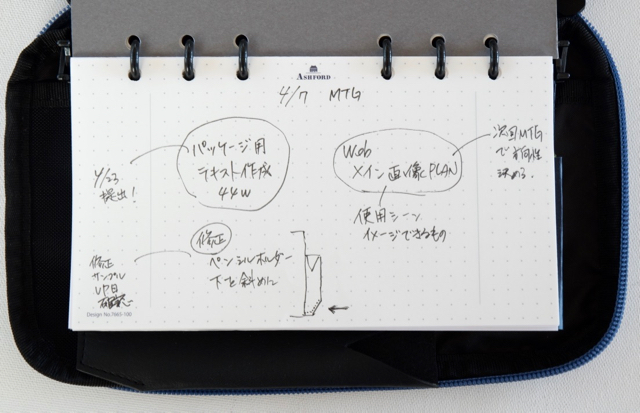 ASHFORD
4/7 MTG
パッケージ用
テキスト作成
44W
4/23
提出!
Web
メイン画像PLAN
次回MTG
で方向性
決める.
使用シーン
イメージできるもの
修正
ペンシルホルダー
下を斜めに
修正
サンプル
UP日
確認
Design No.7665-100